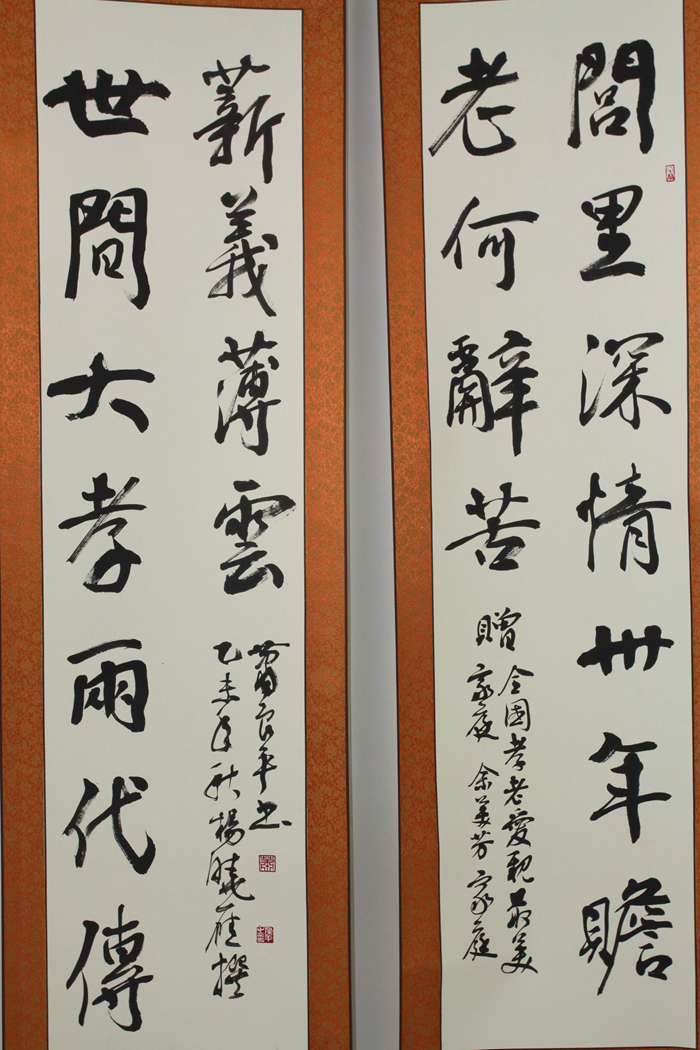 閭里深情卅年贍
老何辭苦
贈
全國孝老愛親最美
家庭 余美芳家庭
世間大孝兩代傳
薪義薄雲
乙未年秋楊曉雁撰
平书